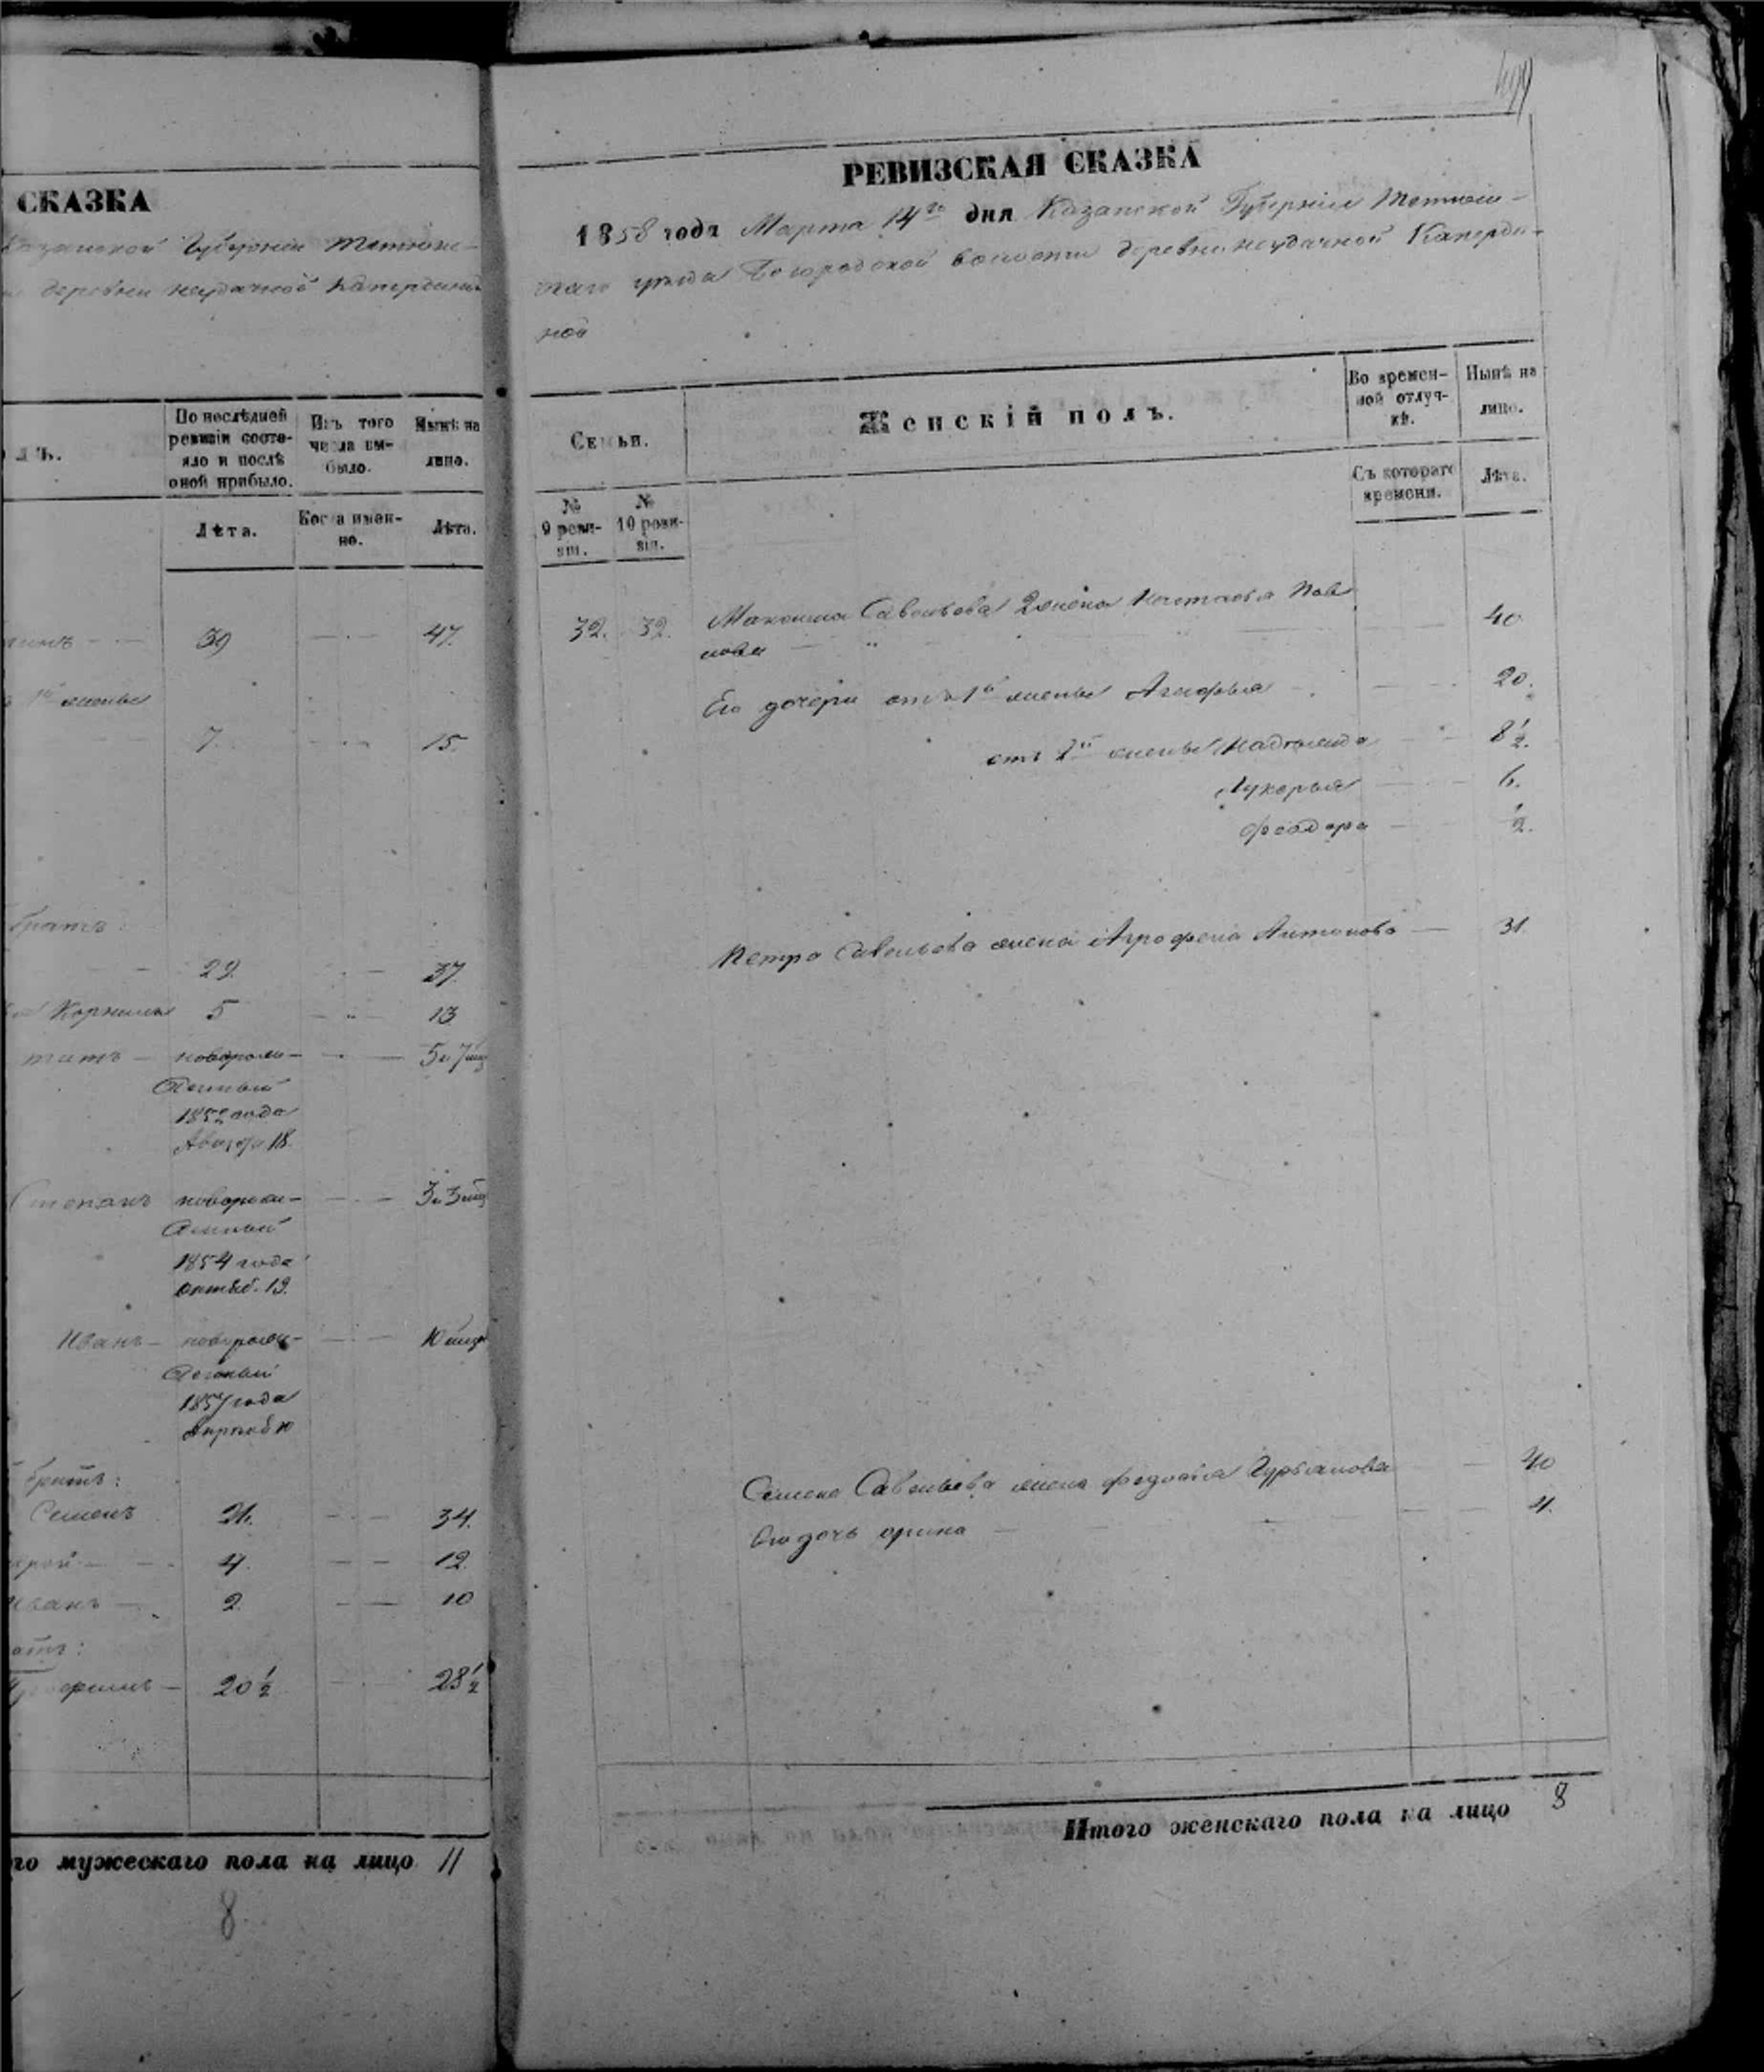 СКАЗКА
Казанской Губернiи Тетюш-
деревни неудачной Капердиной
лъ.
По послѣдней
ревизiи состо-
яло и послѣ
оной прибыло.
Изъ того
числа вы-
было.
Нынѣ на
лицо.
Лѣта.
Когда имен-
но.
Лѣта.
39 — 47.
1й жены
7. 15.
братъ:
29. — 37
Корнилъ 5 — 13
новорож- — 5 и 7 мѣс
денный
1852 года
Августа 18.
Степанъ новорож- — 3 и 5 мѣс
денный
1854 года
октяб. 19.
Иванъ — новорож- — 10 мѣс
денный
1857 года
Апрѣля 10
братъ:
Семенъ 26. — 34.
4. — 12.
Иванъ — 2. — 10
атъ:
20 1/2 — 28 1/2
го мужескаго пола на лицо 11
8
РЕВИЗСКАЯ СКАЗКА
1858 года Марта 14го дня Казанской Губернiи Тетюш-
скаго уѣзда Богородской волости деревни неудачной Каперди-
ной
Семьи.
Женскiй полъ.
Во времен-
ной отлуч-
кѣ.
Нынѣ на
лицо.
№
9 реви-
зiи.
№
10 реви-
зiи.
Съ котораго
времени.
Лѣта.
32. 32. Максима Савельева 2 жена Настасья
— 40
Его дочери отъ 1й жены Агафья — 20.
отъ 2й жены Надежда — 8 1/2.
Лукерья — 6.
Феодора — 1/2.
Петра Савельева жена Аграфена Антонова — 31.
Семена Савельева жена Федосья Гурьянова — 40
Его дочь Орина — 4.
Итого женскаго пола на лицо 8